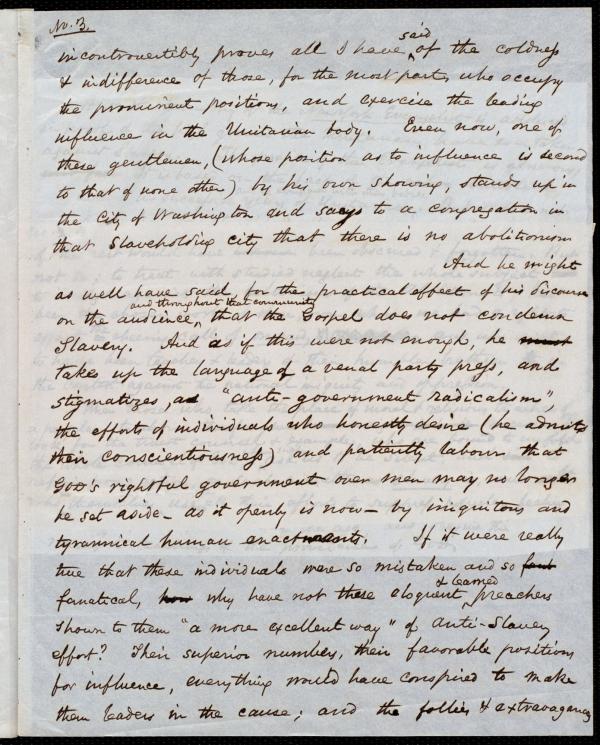 No. 3.
incontrovertibly proves all I have said of the coldness
& indifference of those, for the most part, who occupy
the prominent positions, and exercise the leading
influence in the Unitarian body. Even now, one of
these gentlemen, (whose position as to influence is second
to that of none other) by his own showing, stands up in
the City of Washington and says to a congregation in
that Slaveholding city that there is no abolitionism
And he might
as well have said, for the practical effect of his discourse
on the audience, and throughout that community, that the Gospel does not condemn
Slavery. And as if this were not enough, he must
takes up the language of a venal party press, and
stigmatizes, as "anti-government radicalism",
the efforts of individuals who honestly desire (he admits
their conscientiousness) and patiently labour that
GOD's rightful government over men may no longer
be set aside - as it openly is now - by iniquitous and
tyrannical human enactments. If it were really
true that these individuals were so mistaken and so
fanatical, how why have not these eloquent & learned preachers
shown to them "a more excellent way" of Anti-Slavery
effort? Their superior numbers, their favorable positions
for influence, everything would have conspired to make
them leaders in the cause; and the follies & extravagancies